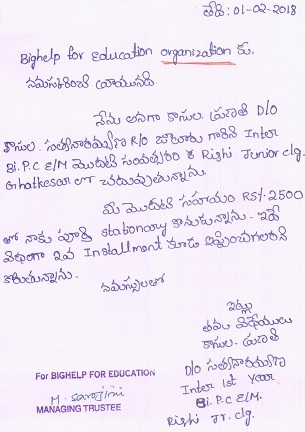 తేది: 01-02-2018
Bighelp for Education organization కు,
నమస్కరించి వ్రాయునది.
నేను అనగా కాసుల. ప్రణతి D/O
కాసుల. సత్యనారాయణ R/O జాలూరు గారిని Inter
Bi.P.C E/M మొదటి సంవత్సరం ఠ Rishi Junior clg.
Ghatkesar లో చదువుతున్నాను.
మీ మొదటి సహాయం RS/- 2500
తో నాకు పూర్తి stationary కొనుకున్నాను. ఇదే
విధంగా 2వ Installment కూడా ఇప్పించగలరని
కోరుతున్నాను.
నమస్సులతో
ఇట్లు
తమ విధేయులు
కాసుల. ప్రణతి
D/O సత్యనారాయణ
Inter 1st Year
Bi. P.C E/M.
Rishi Jr. clg.
For BIGHELP FOR EDUCATION
M. Sarojini
MANAGING TRUSTEE